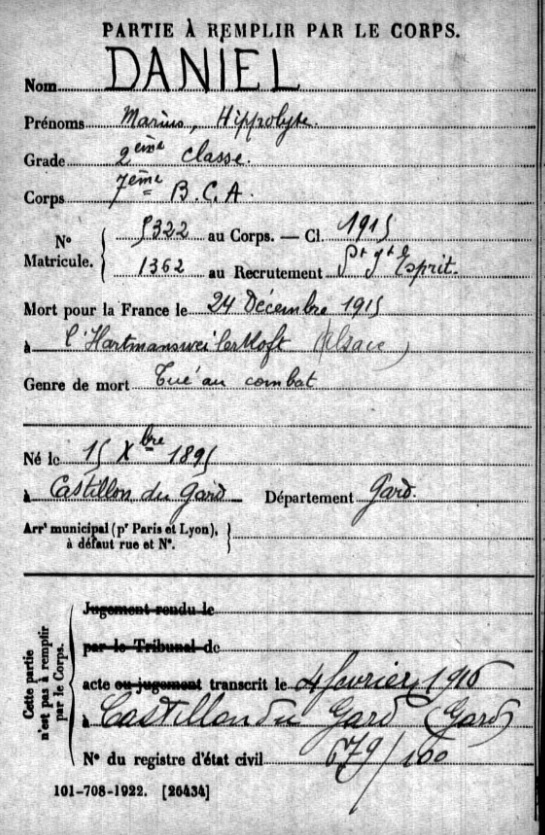 PARTIE À REMPLIR PAR LE CORPS.
Nom DANIEL
Prénoms Marius, Hippolyte.
Grade 2ème classe.
Corps 7ème B.C.A.
N° Matricule. 5322 au Corps. — Cl. 1915
1362 au Recrutement Pt St Esprit.
Mort pour la France le 24 Décembre 1915
à l'Hartmansweilerkoft (Alsace)
Genre de mort Tué au combat
Né le 15 Xbre 1895
à Castillon du Gard Département Gard.
Arrt municipal (pr Paris et Lyon), à défaut rue et N°.
Cette partie n'est pas à remplir par le Corps.
Jugement rendu le
par le Tribunal de
acte ou jugement transcrit le 4 février 1916
à Castillon du Gard (Gard)
N° du registre d'état civil 679/160
101-708-1922. [26434]